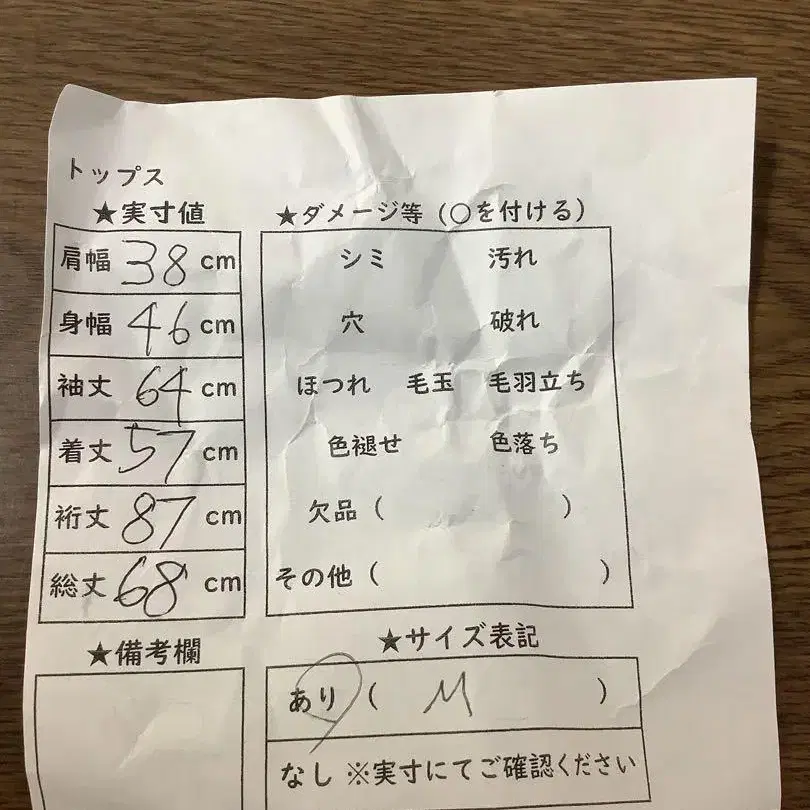 トップス
★実寸値
肩幅 38 cm
身幅 46 cm
袖丈 64 cm
着丈 57 cm
裄丈 87 cm
総丈 68 cm
★備考欄
★ダメージ等（○を付ける）
シミ 汚れ
穴 破れ
ほつれ 毛玉 毛羽立ち
色褪せ 色落ち
欠品（ ）
その他（ ）
★サイズ表記
あり（ M ）
なし ※実寸にてご確認ください